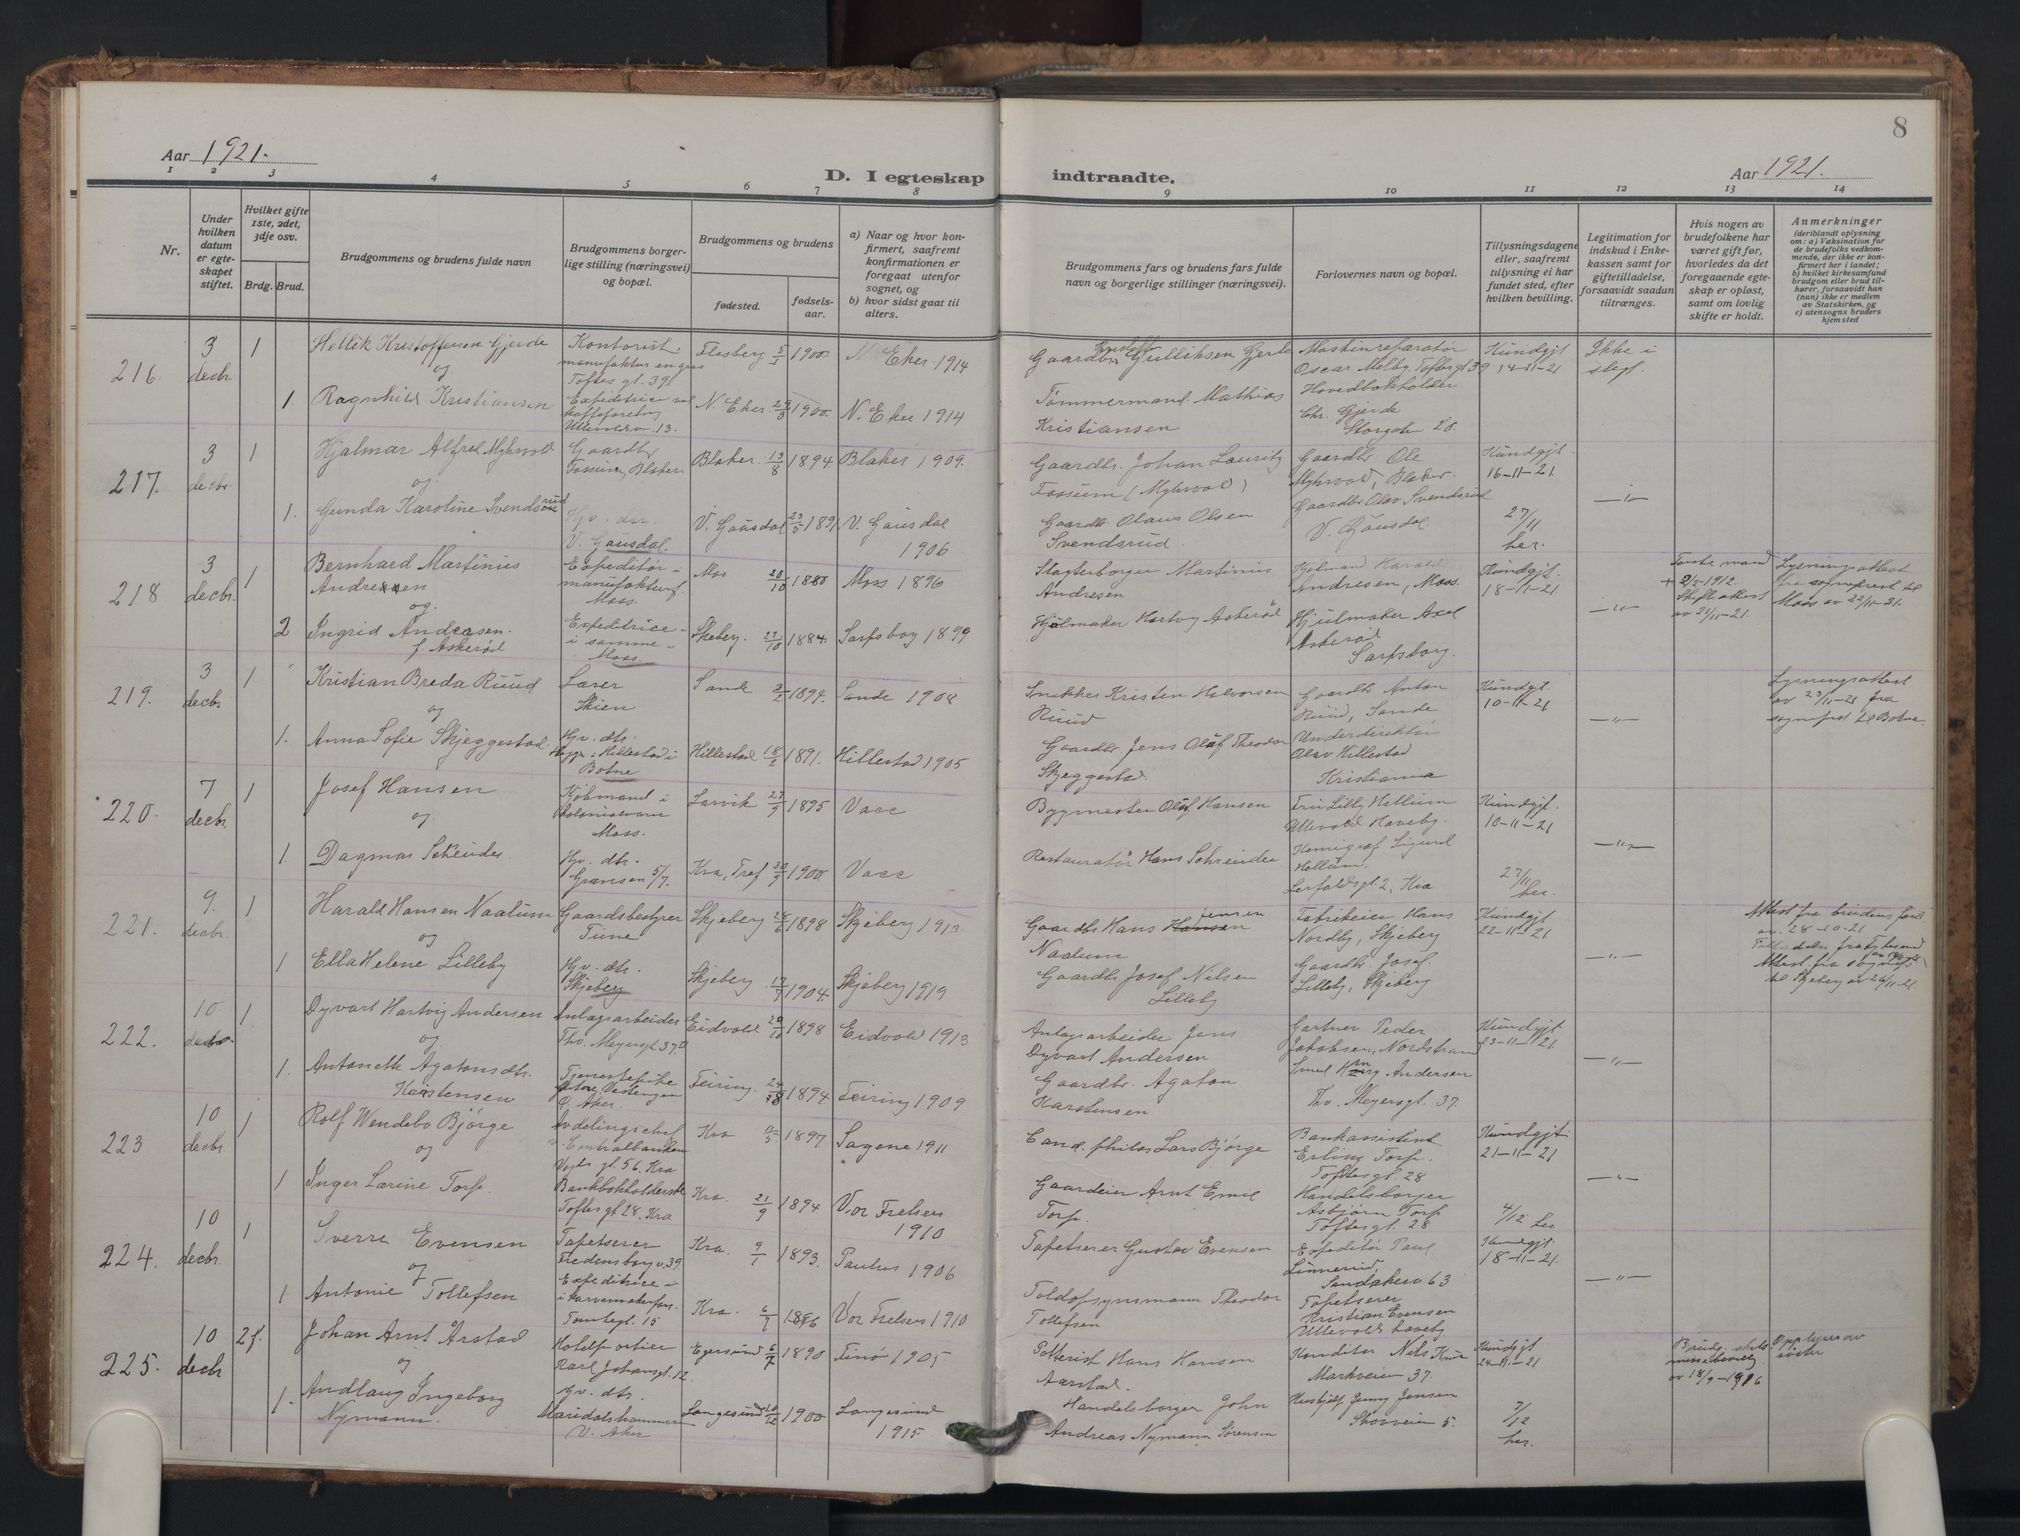 8
Aar 1921.
D. I egteskap indtraadte.
Aar 1921.
1 2 3 4 5 6 7 8 9 10 11 12 13 14
Nr.
Under hvilken datum er egteskapet stiftet.
Hvilket gifte 1ste, 2det, 3dje osv.
Brdg. Brud.
Brudgommens og brudens fulde navn
Brudgommens borgerlige stilling (næringsvei) og bopæl.
Brudgommens og brudens
fødested.
fødselsaar.
a) Naar og hvor konfirmert, saafremt konfirmationen er foregaat utenfor sognet, og
b) hvor sidst gaat til alters.
Brudgommens fars og brudens fars fulde navn og borgerlige stillinger (næringsvei).
Forlovernes navn og bopæl.
Tillysningsdagene eller, saafremt tillysning ei har fundet sted, efter hvilken bevilling.
Legitimation for indskud i Enkekassen samt for giftetilladelse, forsaavidt saadan tiltrænges.
Hvis nogen av brudefolkene har været gift før, hvorledes da det foregaaende egteskap er opløst, samt om lovlig skifte er holdt.
Anmerkninger
(deriblandt oplysning om: a) Vaksination for de brudefolks vedkommende, der ikke er konfirmert her i landet; b) hvilket kirkesamfund brudgom eller brud tilhører, forsaavidt han (hun) ikke er medlem av Statskirken, og c) utensogns bruders hjemsted
216 3 decbr. 1 Hellik Kristoffersen Gjerde Kontorist manufaktur en gros Toftes gt. 39 Flesberg 5/1 1900 N. Eker 1914 Gaardbr. Kristoffer Gulliksen Gjerde Maskinreparatør Oscar Melby, Toftesgt 39 Kundgjt 14-11-21 Ikke i slegt.
og
1. Ragnhild Kristiansen Expeditrice ved kaffeforretng Ullevoldsv. 13. N. Eker 29/3 1900 N. Eker 1914 Tømmermand Mathias Kristiansen Hovedbokholder Chr. Gjerde Storgaten 28.
217. 3 decbr. 1 Hjalmar Alfred Myhrvold Gaardbr. Fossum, Blaker Blaker 13/8 1894 Blaker 1909. Gaardbr. Johan Lauritz Fossum (Myhrvold) Gaardbr. Ole Myhrvold, Blaker Kundgjt. 16-11-21
og
1. Gunda Karoline Svendsrud Hv. dtr. V. Gausdal. V. Gausdal 23/5 1891 V. Gausdal 1906 Gaardbr. Olaus Olsen Svendsrud Gaardbr Olav Svendsrud V. Gausdal 27/11 her.
218 3 decbr. 1 Bernhard Martinius Andresen Expeditør manufakturf. Moss. Moss 20/10 1880 Moss 1896 Slagterborger Martinius Andresen Harald Andresen, Moss. Kundgjt. 18-11-21 Første mand + 2/2 1912 Skifteattest av 21/11-21. Lysningsattest fra sogneprest til Moss av 22/11-21.
og
2 Ingrid Andresen f. Askerød Expeditrice i samme Moss. Skeberg. 23/10 1884. Sarpsborg 1899 Hjulmaker Hartvig Askerød Hjulmaker Axel Askerød Sarpsborg.
219. 3 decbr 1 Kristian Breda Ruud Lærer Skien Sande 2/2 1894. Sande 1908 Snekker Kristen Halvorsen Ruud Gaardbr Anton Ruud, Sande Kundgt. 10-11-21 Lysningsattest av 23/11-21 fra sogneprst til Botne
og
1. Anna Sofie Skjeggestad Hv. dtr. Hillestad i Botne Hillestad 18/2 1891. Hillestad 1905 Gaardbr Jens Oluf Theodor Skjeggestad. Underdirektør Olav Hillestad Kristiania
220. 7 decbr. 1 Josef Hansen Kjøbmand i kolonialvarer Moss. Larvik 27/9 1895 Vacc Bygmester Oluf Hansen Fru Lilly Hellum Ullevold Haveby. Kundgjt. 10-11-21
og
1. Dagmar Schreuder. Hv. dtr. Grænsen 5/7. Kra, Tref 30/9 1900 Vacc Restauratør Hans Schreuder Kemigraf Sigurd Hellum. 2, Kra 27/11 her.
221. 9. decbr. 1 Harald Hansen Naalum Gaardsbestyrer Tune Skjeberg 28/2 1898 Skjeberg 1913 Gaardbr. Hans Jensen Naalum Fabrikeier Hans Nordby, Skjeberg Kundgjt 22-11-21 Attest fra brudens
og
1 Ella Helene Lilleby Hv. dtr. Skjeberg Skjeberg 17/9 1904. Skjeberg 1919 Gaardbr Josef Nilsen Lilleby Gaardbr. Josef Lilleby, Skjeberg Attest fra sognepr til Skjeberg av 26/11-21
222. 10 decbr 1 Dyvart Hartvig Andersen Anlægsarbeider Thv. Meyersgt 37. Eidvold 20/10 1898 Eidvold 1913 Anlægsarbeider Jens Dyvart Andersen Gartner Peder Jakobsen, Nordstrand Kundgjt 23-11-21
og
1. Antonette Agatonsdtr. Karstensen Tjenestepike Ø. Aker Feiring 24/8 1894 Feiring 1909 Gaardbr. Agaton Karstensen Andersen Thv. Meyersgt. 37.
223 10 decbr. 1 Rolf Wendebo Bjørge Avdelingschef v. Centralbanken Vogts gt. 56. Kra Kra 11/5 1897. Sagene 1911 Cand. philos Lars Bjørge Bankassistent Erling Torp. Toftesgt. 28 Kundgjt 21-11-21
og
1 Inger Lærine Torp. Bankbokholderske Toftesgt 28. Kra Kra. 21/9 1894 Vor Frelsers 1910 Gaardeier Arnt Emil Torp. Handelsborger Asbjørn Torp Toftesgt. 28 4/12 her
224. 10 decbr. 1 Sverre Evensen Tapetserer Fredensborgv. 39 Kra. 9/1 1893. Paulus 1906 Tapetserer Gustav Evensen Expeditør Paul Linnerud, Sandakerv 63 Kundgjt. 18-11-21.
og
1 Antonie Tollefsen Expeditrice i Tomtegt. 15 Kra. 6/7 1896 Vor Frelsers 1910 Toldopsynsmann Theodor Tollefsen Tapetserer Kristian Evensen Ullevold haveby
225. 10 decbr 2 f. Johan Arnt Årstad Hotelportier Karl Johansgt. 12. Egersund 6/7 1890 1905 Hans Hansen Aarstad. Konditor Nils Markveien 37. Kundgjt 24-11-21 av 18/9-1916
og
1. Andlaug Ingeborg Nymann. Hv. dtr. Maridalshammeren V. Aker Langesund 1900 Langesund 1915. Handelsborger John Andreas Nymann Sørensen Jenny Jensen Skovveien 5. 7/12 her.